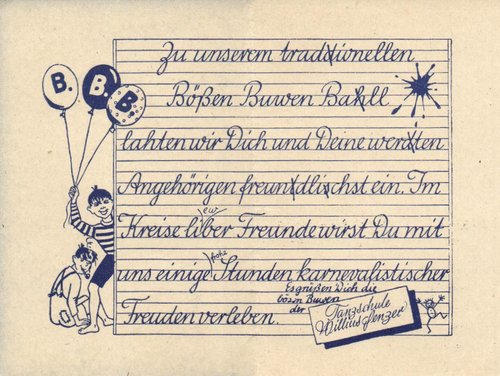 B. B. B.
Zu unserem tradtionellen
Bößen Buwen Bahll
lahten wir Dich und Deine werdten
Angehörigen freuntdlischst ein. Im
ew
Kreise liber Freunde wirst Du mit
frohe
uns einige Stunden karnevalistischer
Freuden verleben.
Es grüßen Dich die
bözen Buwen
der
Tanzschule
Willius-Senzer